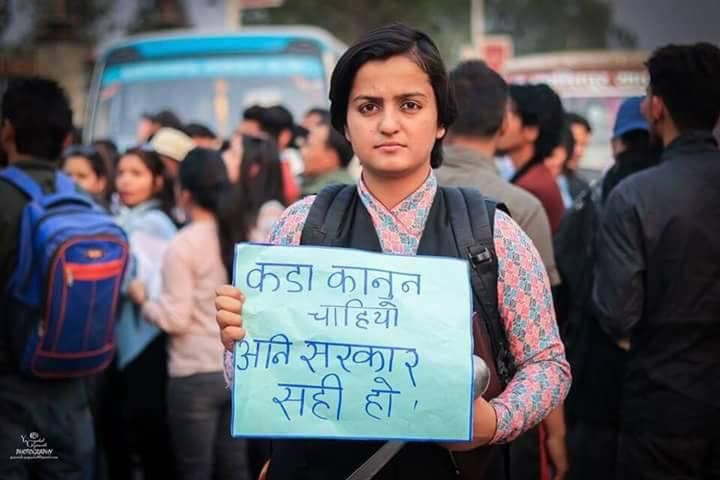 कडा कानुन
चाहियो
अनि सरकार
सही हो '
PHOTOGRAPHY